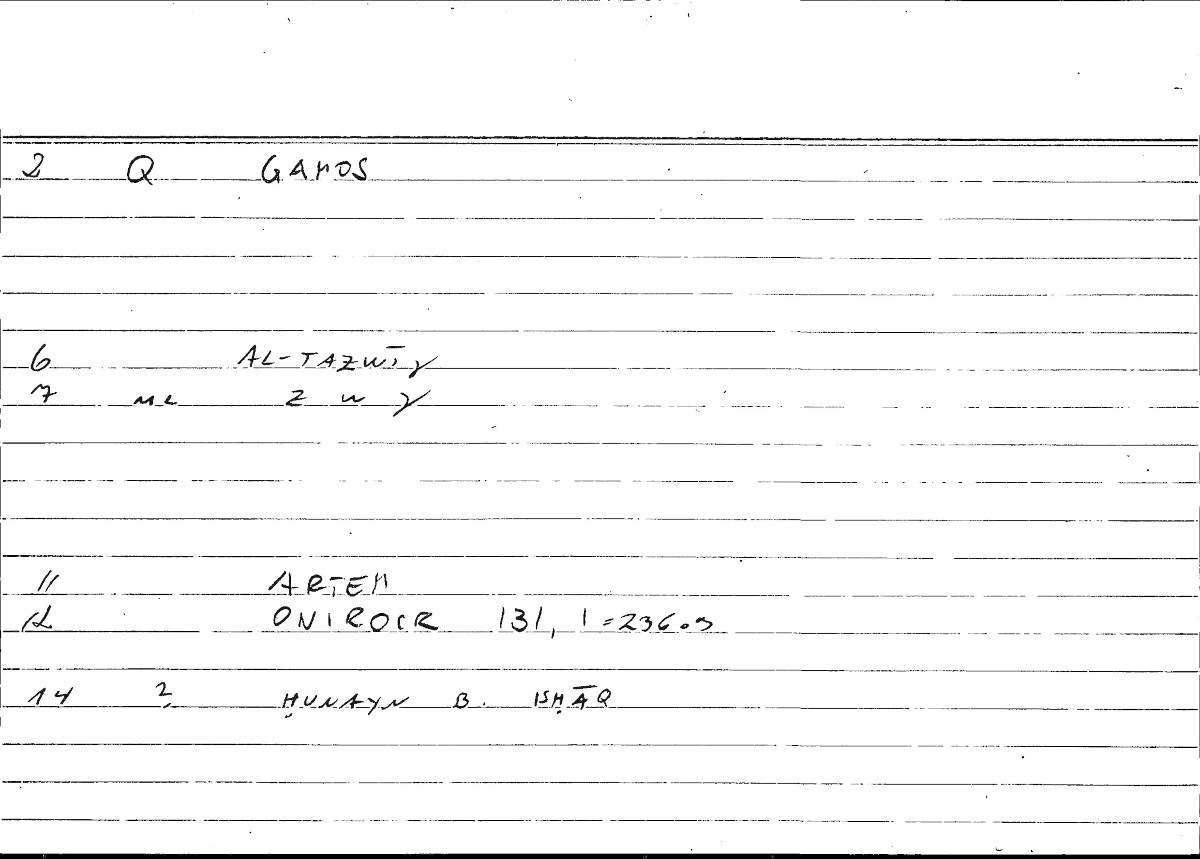 2 Q GAMOS
6 AL-TAZWĪǦ
7 ML Z W Ǧ
11 ARTEM
12 ONIROCR 131, 1 = 236.9
14 2 ḤUNAYN B. ISḤĀQ